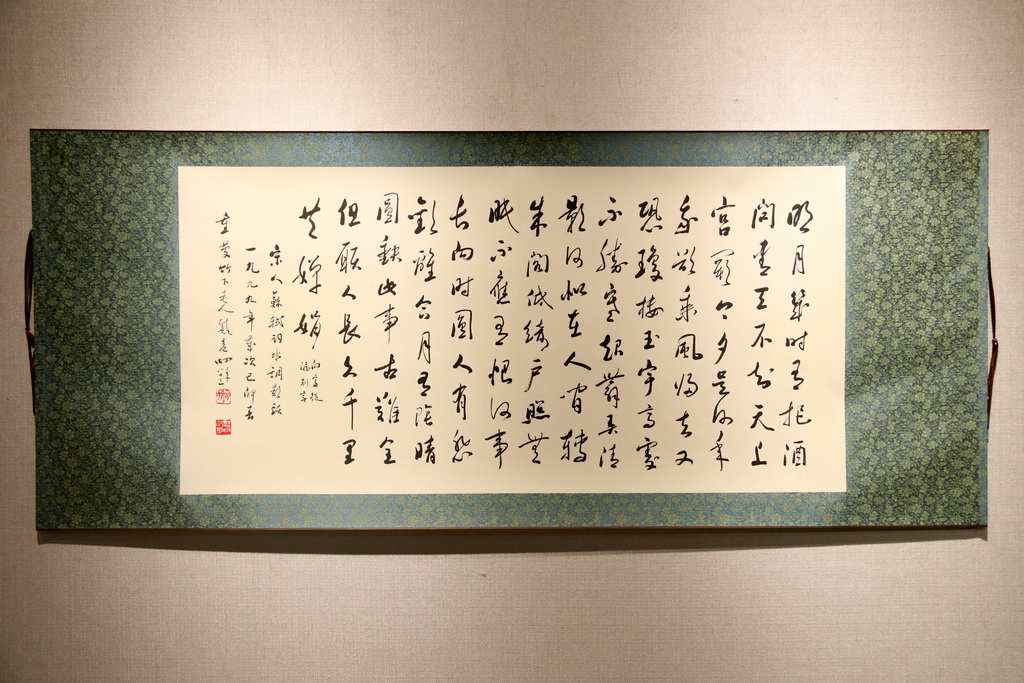 明月幾時有把酒
問青天不知天上
宮闕今夕是何年
我欲乘風歸去又
恐瓊樓玉宇高處
不勝寒起舞弄清
影何似在人間轉
朱閣低綺戶照無
眠不應有恨何事
長向時圓人有悲
歡離合月有陰晴
圓缺此事古難全
但願人長久千里
共嬋娟
向字後
漏別字
宋人蘇軾詞水調歌頭
一九九九年歲次己卯春